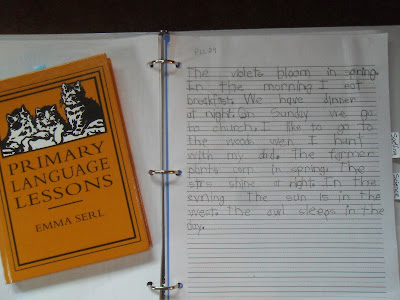 PRIMARY
LANGUAGE
LESSONS
EMMA SERL
The violets bloom in spring.
In the morning I eat
breakfist. We have dinner
at night. On Sunday we go
to church. I like to go to
the woods wen I hunt
with my dad. The farmer
plants corn in spring. The
strs shine at night. In the
evning the sun is in the
west. the owl sleeps in the
day.